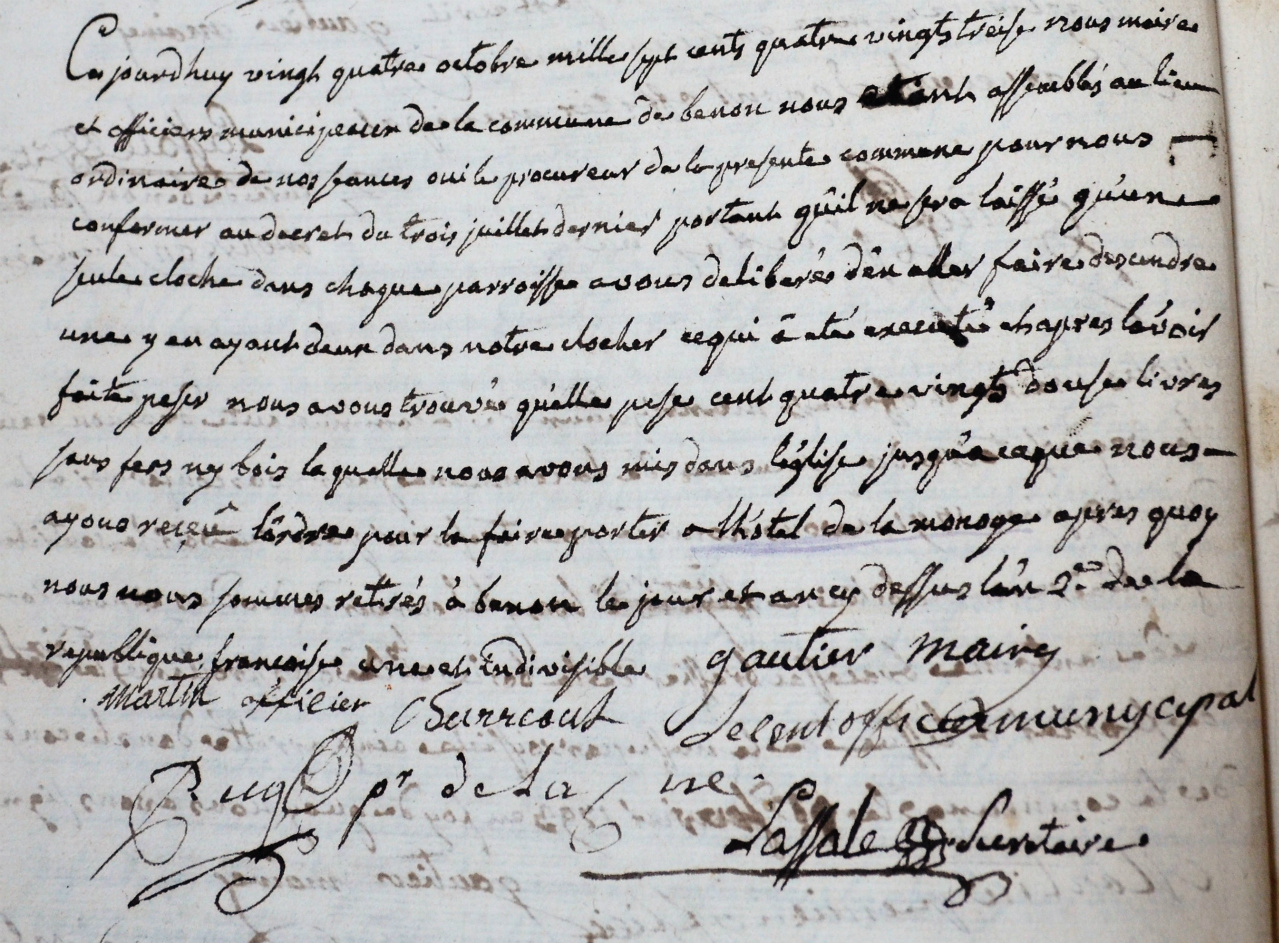 Ce jourdhuy vingt quatre octobre mille sept cents quatre vingts treise nous maire
et officiers municipeaux de la commune de benon nous etant assemblés au lieu
ordinaire de nos seances oui le procureur de la presente commune pour nous
conformer au decret du trois juillet dernier portant qu'il ne sera laissé qu'une
seule cloche dans chaque parroisse avons deliberés d'en aller faire descendre
une y en ayant deux dans notre clocher ce qui â eté executé et apres l'avoir
faite peser nous avons trouvé qu'elle pese cent quatre vingts douse livres
sans fers ny bois la quelle nous avons mis dans l'église jusqu'a ceque nous
ayons reçeû l'ordre pour la faire porter a lhôtel de la monoye apres quoy
nous nous sommes retirés à benon le jour et an cy dessus l'an 2.e de la
republique francaise une et indivisible
gautier maire
martin officier
officier munycipal
pr de La ne
Lassale Secretaire